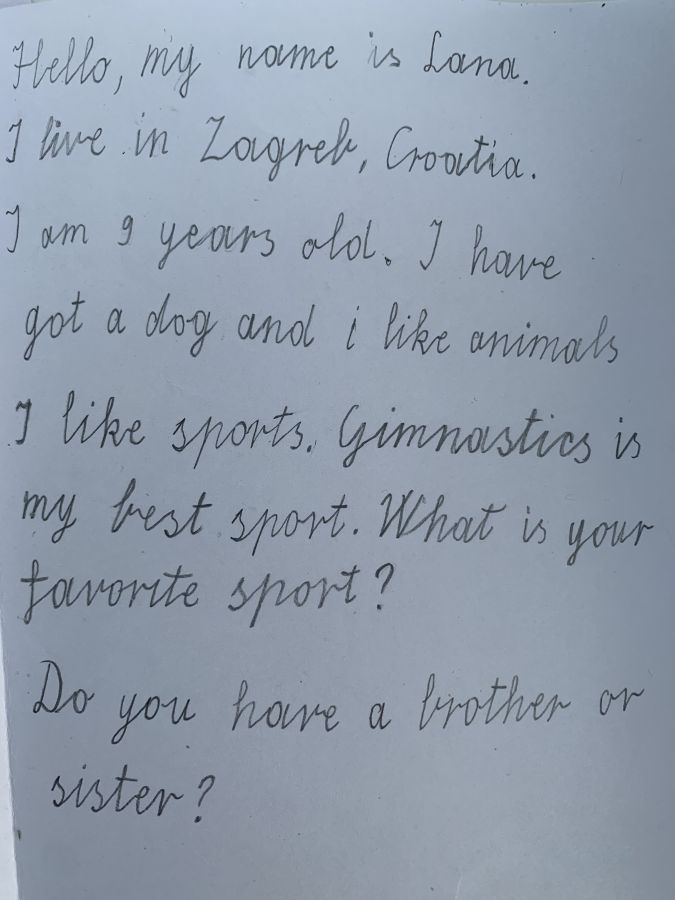 Hello, my name is Lana.
I live in Zagreb, Croatia.
I am 9 years old. I have
got a dog and i like animals
I like sports. Gimnastics is
my best sport. What is your
favorite sport?
Do you have a brother or
sister?